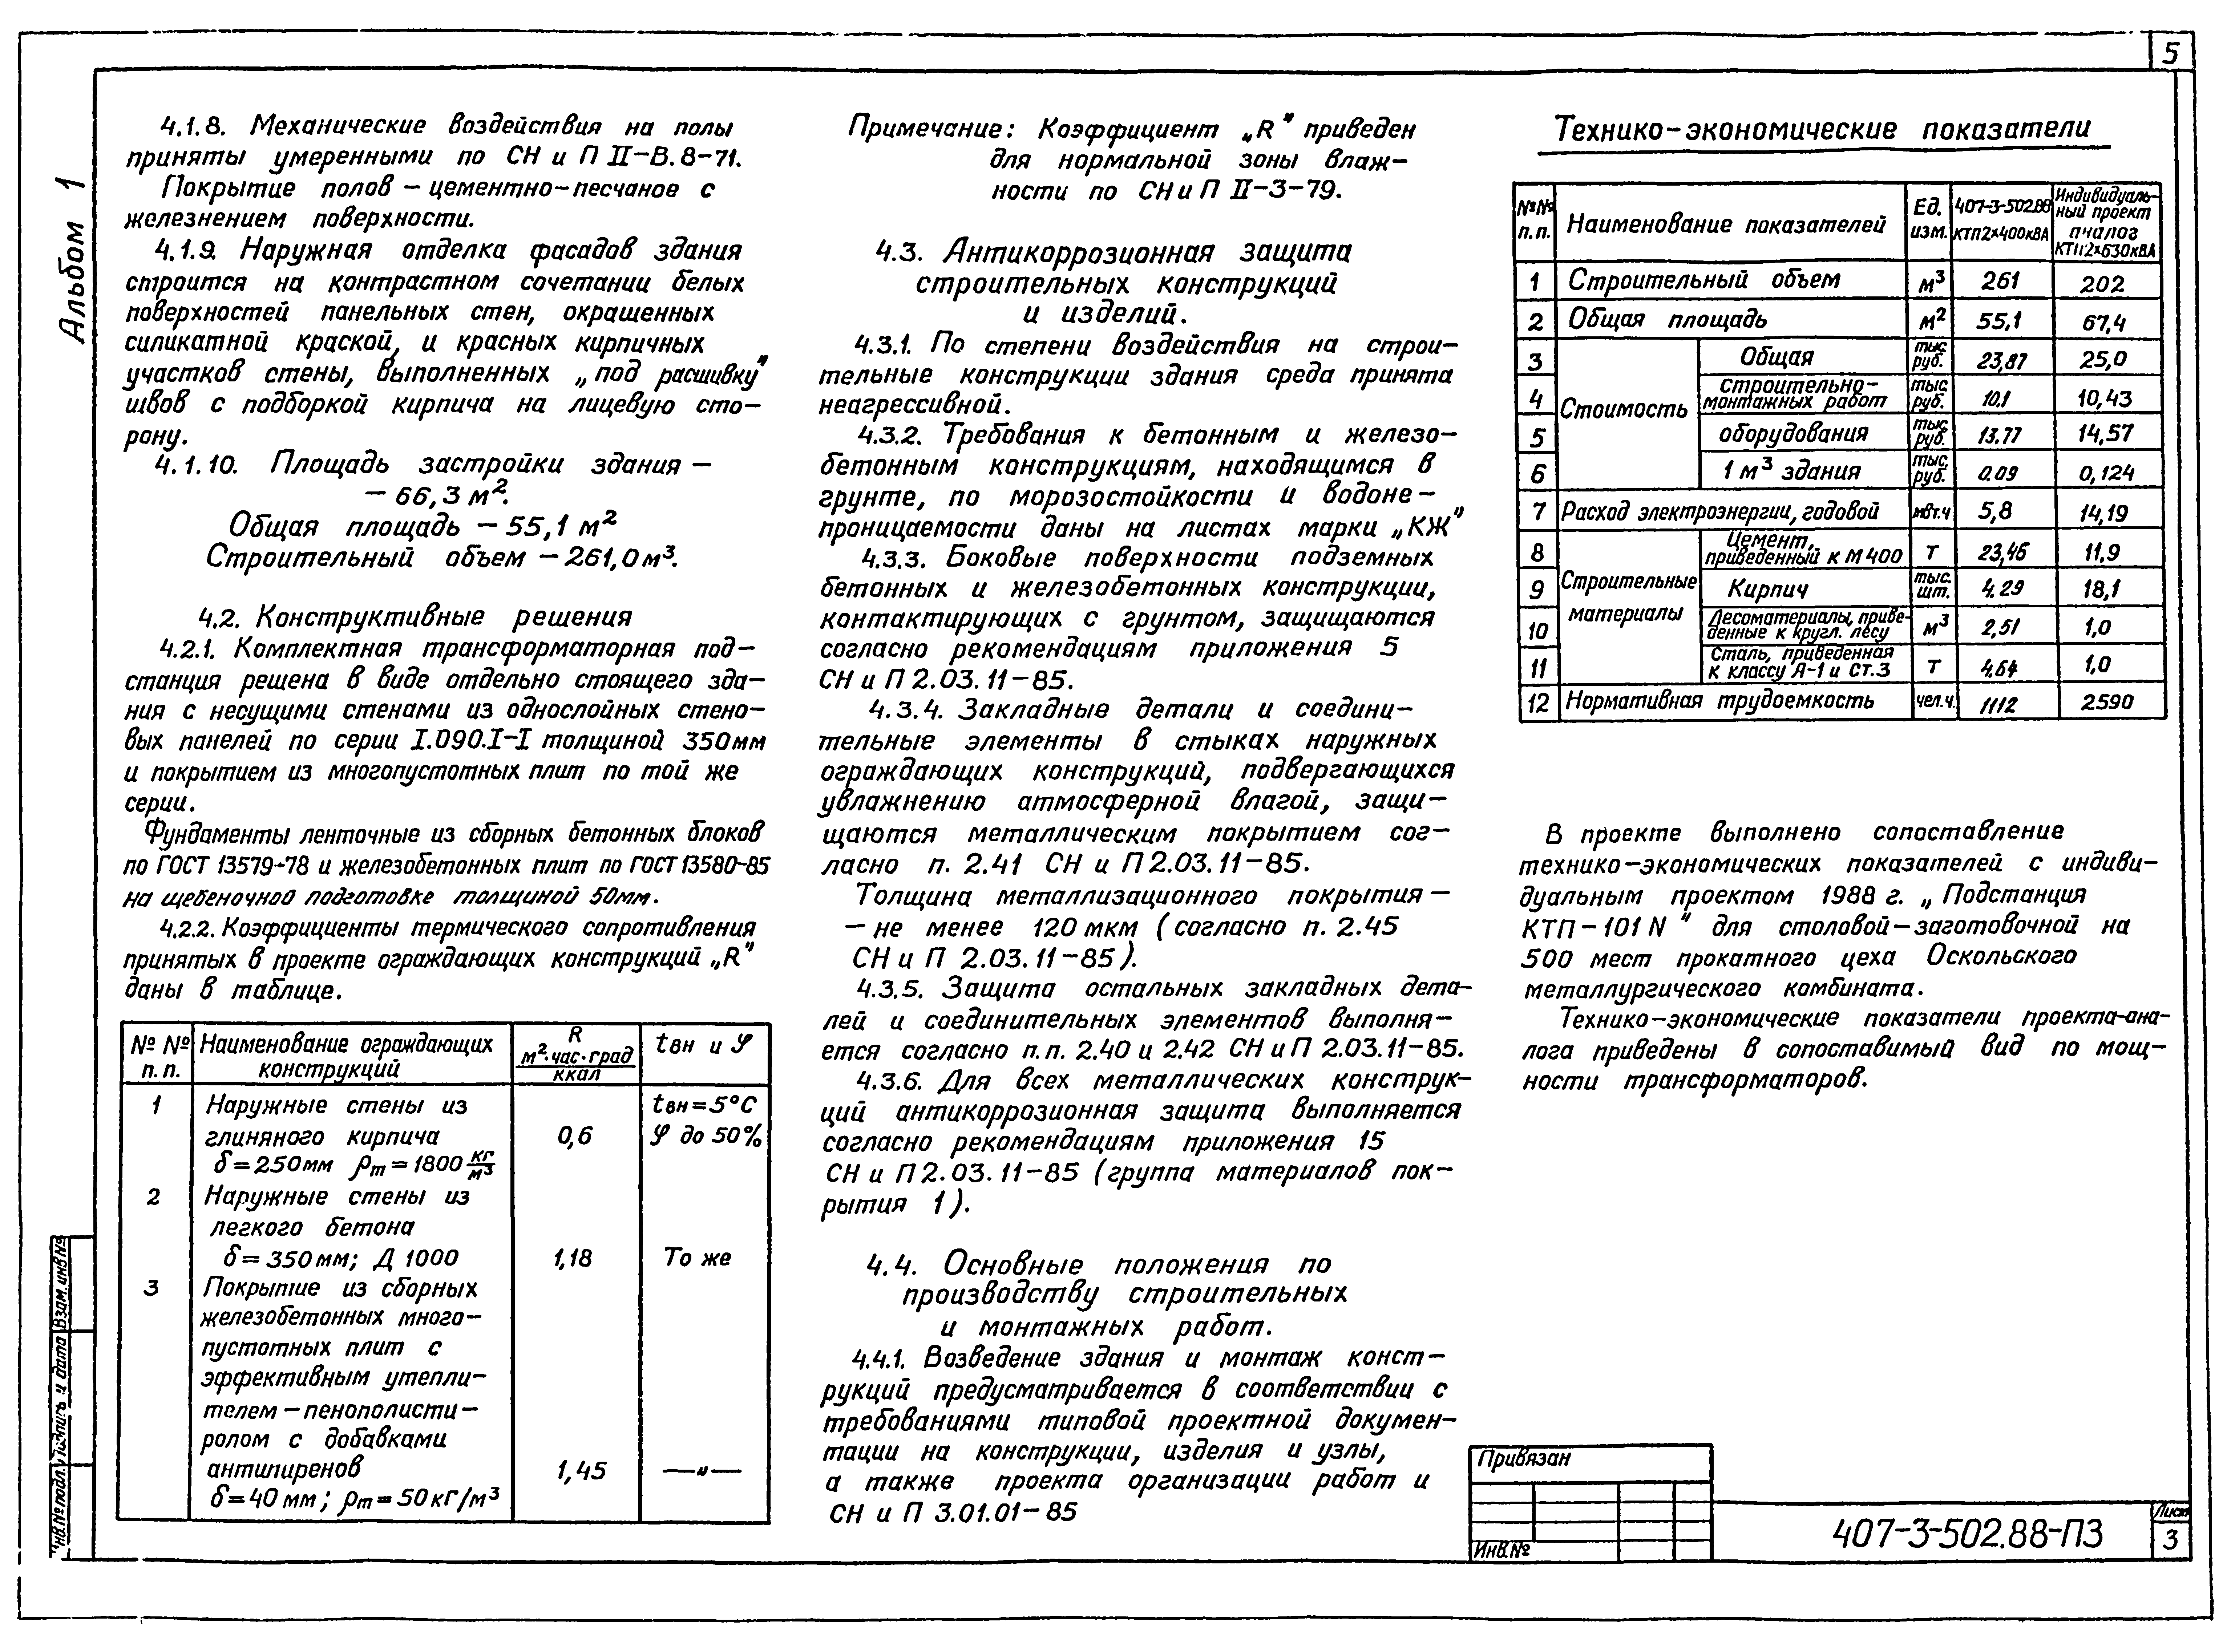 5
Альбом 1
4.1.8. Механические воздействия на полы
приняты умеренными по СН и П II-В.8-71.
Покрытие полов – цементно-песчаное с
железнением поверхности.
4.1.9. Наружная отделка фасадов здания
строится на контрастном сочетании белых
поверхностей панельных стен, окрашенных
силикатной краской, и красных кирпичных
участков стены, выполненных „под расшивку"
швов с подборкой кирпича на лицевую сто-
рону.
4.1.10. Площадь застройки здания –
– 66,3 м².
Общая площадь – 55,1 м²
Строительный объем – 261,0 м³.
4.2. Конструктивные решения
4.2.1. Комплектная трансформаторная под-
станция решена в виде отдельно стоящего зда-
ния с несущими стенами из однослойных стено-
вых панелей по серии I.090.I-I толщиной 350 мм
и покрытием из многопустотных плит по той же
серии.
Фундаменты ленточные из сборных бетонных блоков
по ГОСТ 13579-78 и железобетонных плит по ГОСТ 13580-85
на щебеночной подготовке толщиной 50мм.
4.2.2. Коэффициенты термического сопротивления
принятых в проекте ограждающих конструкций „R"
даны в таблице.
№№ п.п. Наименование ограждающих конструкций R м²·час·град/ккал tвн и φ
1 Наружные стены из
глиняного кирпича
δ=250мм ρm=1800 кг/м³ 0,6 tвн=5°С φ до 50%
2 Наружные стены из
легкого бетона
δ=350мм; Д 1000 1,18 То же
3 Покрытие из сборных
железобетонных много-
пустотных плит с
эффективным утепли-
телем – пенополисти-
ролом с добавками
антипиренов 1,45 —„—
δ=40 мм; ρm=50 кг/м³
Примечание: Коэффициент „R" приведен
для нормальной зоны влаж-
ности по СН и П II-3-79.
4.3. Антикоррозионная защита
строительных конструкций
и изделий.
4.3.1. По степени воздействия на строи-
тельные конструкции здания среда принята
неагрессивной.
4.3.2. Требования к бетонным и железо-
бетонным конструкциям, находящимся в
грунте, по морозостойкости и водоне-
проницаемости даны на листах марки „КЖ"
4.3.3. Боковые поверхности подземных
бетонных и железобетонных конструкции,
контактирующих с грунтом, защищаются
согласно рекомендациям приложения 5
СН и П 2.03.11-85.
4.3.4. Закладные детали и соедини-
тельные элементы в стыках наружных
ограждающих конструкций, подвергающихся
увлажнению атмосферной влагой, защи-
щаются металлическим покрытием сог-
ласно п. 2.41 СН и П 2.03.11-85.
Толщина металлизационного покрытия –
– не менее 120 мкм (согласно п. 2.45
СН и П 2.03.11-85).
4.3.5. Защита остальных закладных дета-
лей и соединительных элементов выполня-
ется согласно п.п. 2.40 и 2.42 СН и П 2.03.11-85.
4.3.6. Для всех металлических конструк-
ций антикоррозионная защита выполняется
согласно рекомендациям приложения 15
СН и П 2.03.11-85 (группа материалов пок-
рытия 1).
4.4. Основные положения по
производству строительных
и монтажных работ.
4.4.1. Возведение здания и монтаж конст-
рукций предусматривается в соответствии с
требованиями типовой проектной докумен-
тации на конструкции, изделия и узлы,
а также проекта организации работ и
СН и П 3.01.01-85
Технико-экономические показатели
№№ п.п. Наименование показателей Ед. изм. 407-3-502.88 КТП2×400кВА Индивидуаль-ный проект аналог КТП2×630кВА
1 Строительный объем м³ 261 202
2 Общая площадь м² 55,1 67,4
Стоимость
3 Общая тыс. руб. 23,87 25,0
4 строительно-монтажных работ тыс. руб. 10.1 10,43
5 оборудования тыс. руб. 13.77 14,57
6 1 м³ здания тыс. руб. 0.09 0,124
7 Расход электроэнергии, годовой мвт.ч 5,8 14,19
Строительные материалы
8 Цемент, приведенный к М 400 Т 23,46 11,9
9 Кирпич тыс. шт. 4.29 18,1
10 Лесоматериалы, приве-денные к кругл. лесу м³ 2,51 1,0
11 Сталь, приведенная к классу А-1 и Ст.3 Т 4,64 1,0
12 Нормативная трудоемкость чел.ч. 1112 2590
В проекте выполнено сопоставление
технико-экономических показателей с индиви-
дуальным проектом 1988 г. „Подстанция
КТП-101 N" для столовой-заготовочной на
500 мест прокатного цеха Оскольского
металлургического комбината.
Технико-экономические показатели проекта-ана-
лога приведены в сопоставимый вид по мощ-
ности трансформаторов.
Привязан
Инв.№
407-3-502.88-ПЗ
Лист
3
Взам. инв №
Подпись и дата
Инв.№ подл.